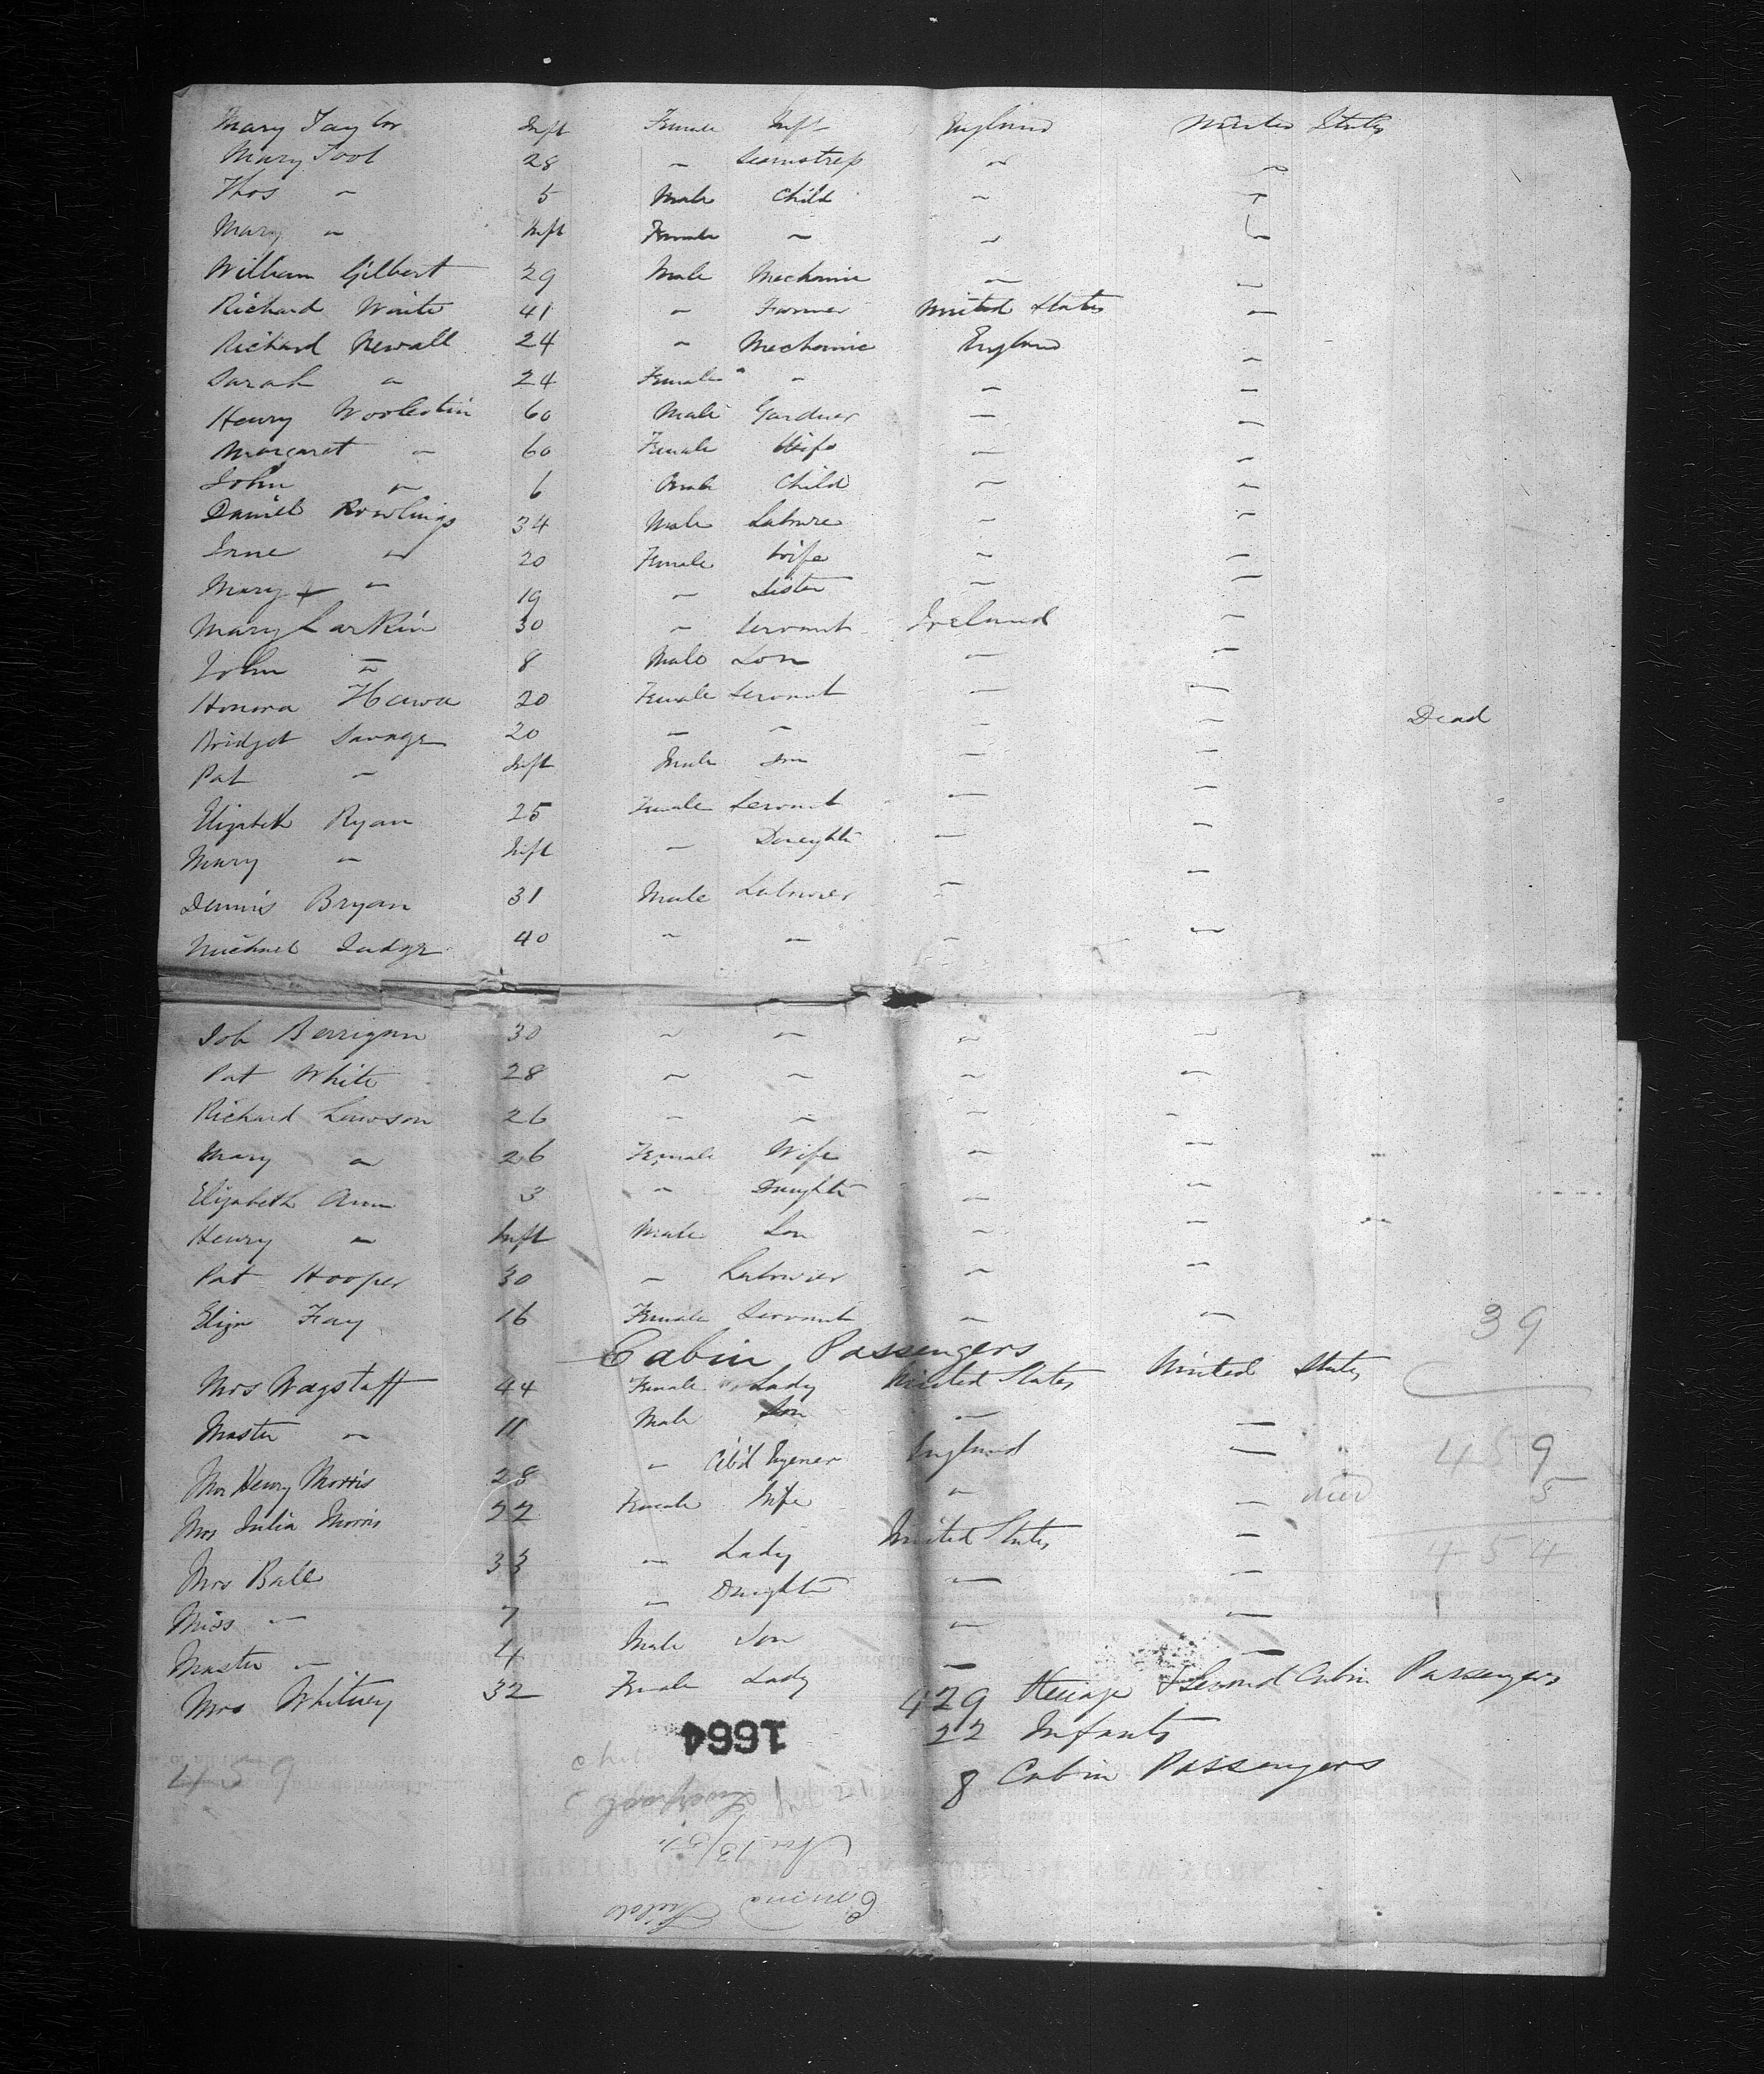 Mary Taylor Inft Female Inft England United States
Mary Tool 28 " Seamstress " "
Thos " 5 Male Child " "
Mary " Inft Female " " "
William Gilbert 29 Male Mechanic " "
Richard Waite 41 " Farmer United States "
Richard Newall 24 " Mechanic England "
Sarah " 24 Female " " "
Henry 60 Male Gardner " "
Margaret " 60 Female Wife " "
John " 6 Male Child " "
Daniel Rowlings 34 Male Labure " "
" 20 Female Wife " "
Mary " 19 " Sister " "
Mary Larkin 30 " Servant Ireland "
John " 8 Male Son " "
Honora 20 Female Servant " "
Bridget Savage 20 " " " " Dead
Pat " Inft Male Son " "
Elizabeth Ryan 25 Female Servant " "
Mary " Inft " Daughtr " "
Dennis Bryan 31 Male Labourer " "
Michael Judge 40 " " " "
Job Berrigan 30 " " " "
Pat White 28 " " " "
Richard Lawson 26 " " " "
Mary " 26 Female Wife " "
Elizabeth Ann 3 " Daughtr " "
Henry " Inft Male Son " "
Pat Hooper 30 " Labourer " "
Eliza Fay 16 Female Servant " "
39
Cabin Passengers
Mrs Wagstaff 44 Female Lady United States United States
Master " 11 Male Son " "
Mr Henry Morris 28 " England " 459
Mrs Julia Morris 22 Female Wife " " died 5
Mrs Bale 33 " Lady United States " 454
Miss " 7 " Daughtr " "
Master " 4 Male Son " "
Mrs Whitney 32 Female Lady " "
429 Steerage & Second Cabin Passengers
22 Infants
8 Cabin Passengers
1664
459
Liverpool
Nov 13/51